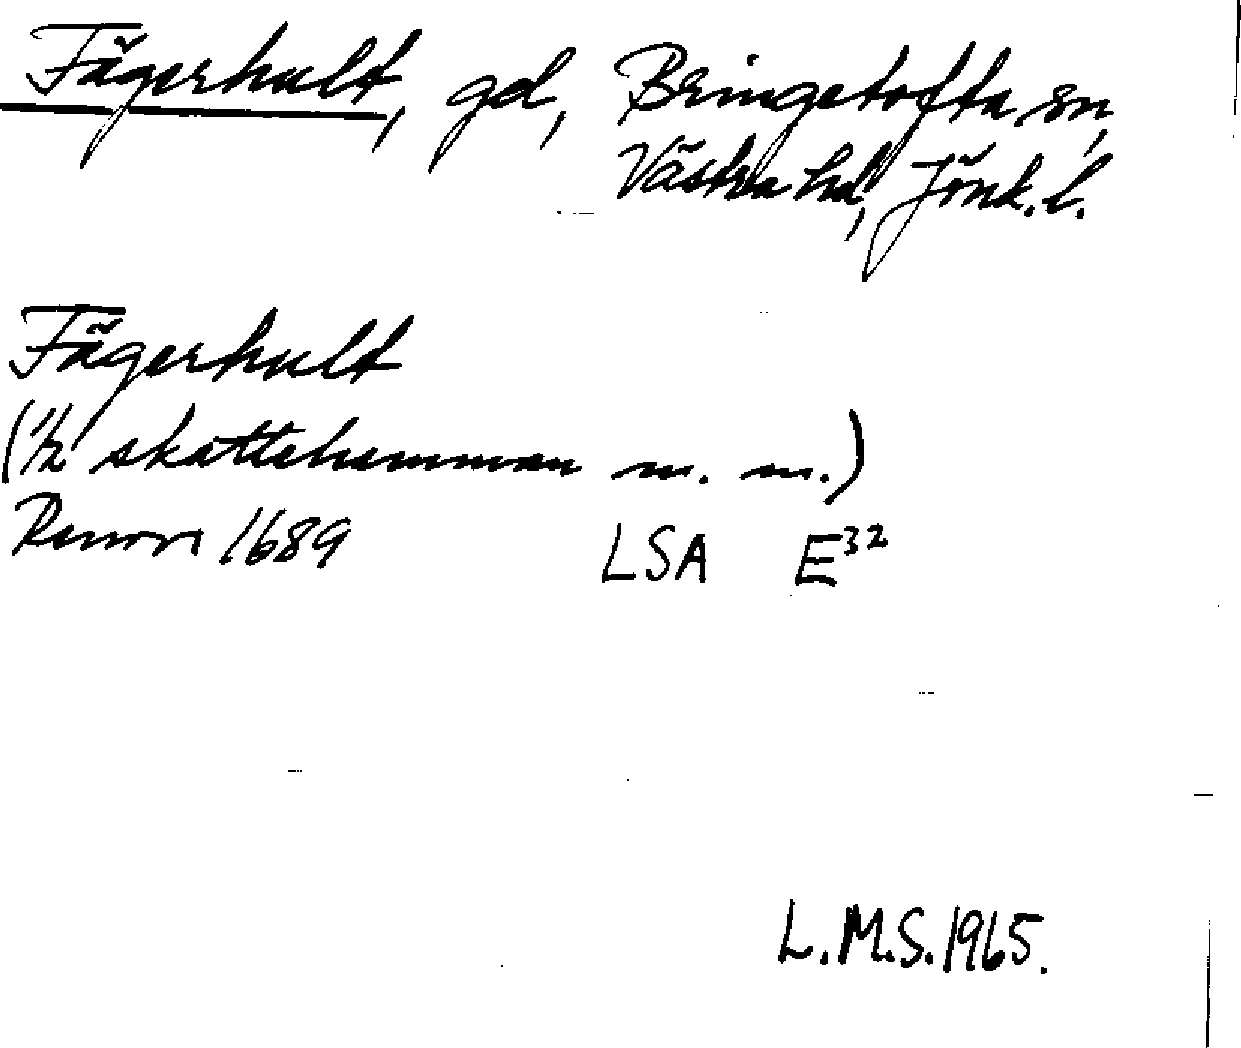 Fägerhult, gd, Bringetofta sn,
Västra hd, Jönk. l.
Fägerhult
(1/2 skattehemman m. m.)
Renov 1689 LSA E32
L.M.S. 1965.